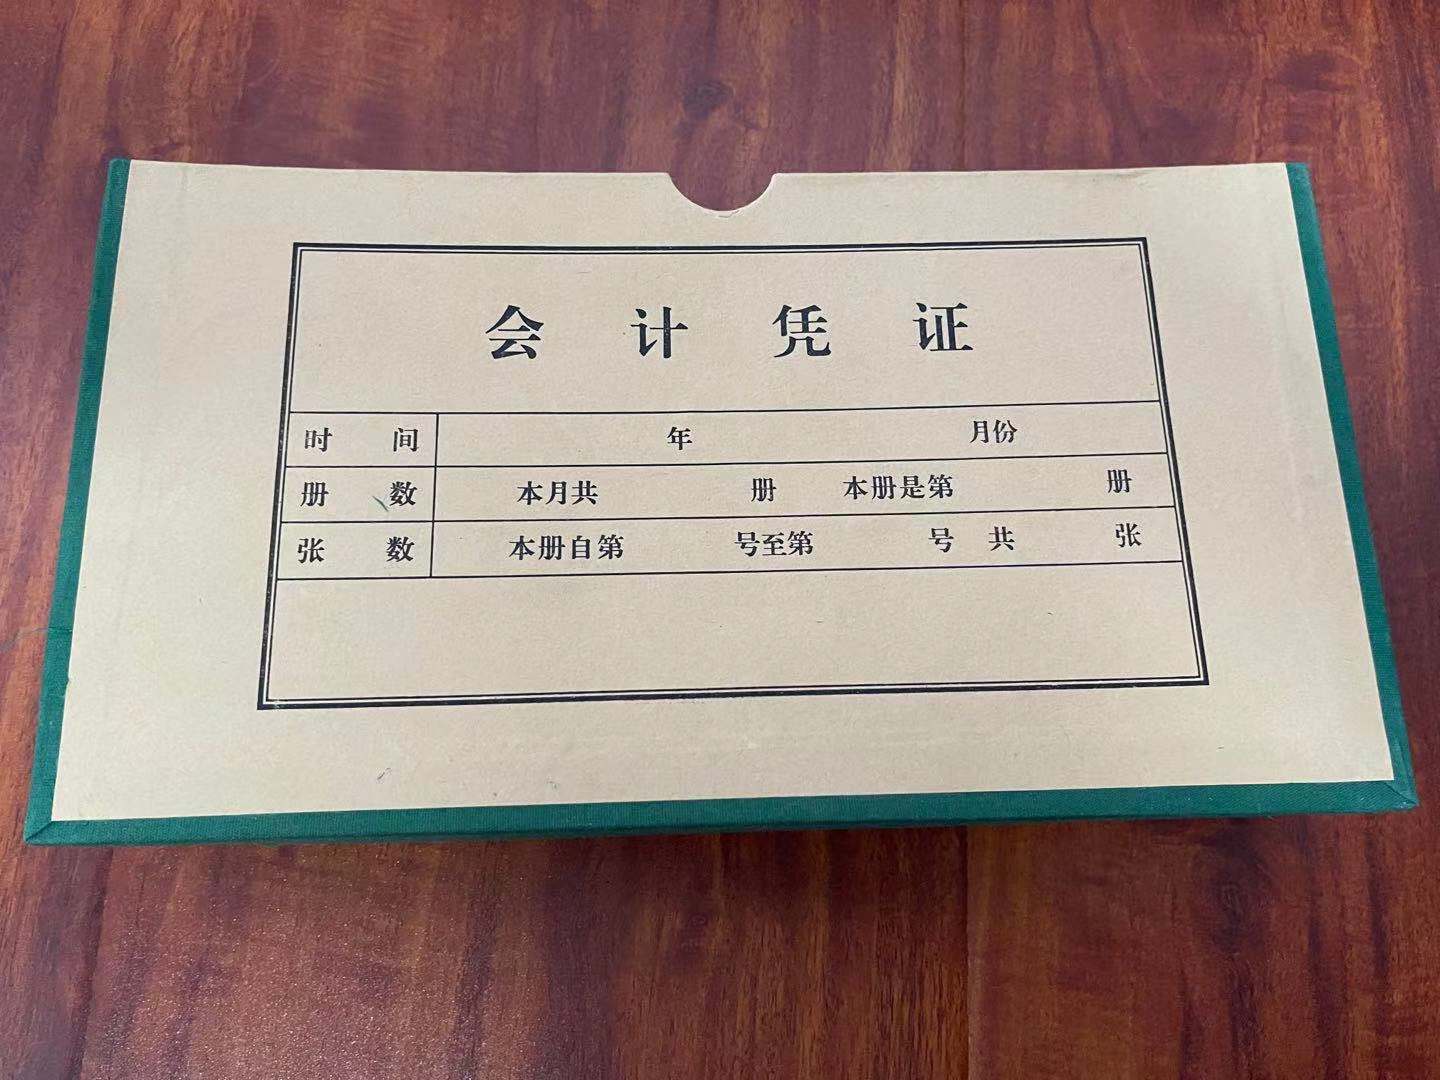 会计凭证
时间 年 月份
册数 本月共 册 本册是第 册
张数 本册自第 号至第 号 共 张